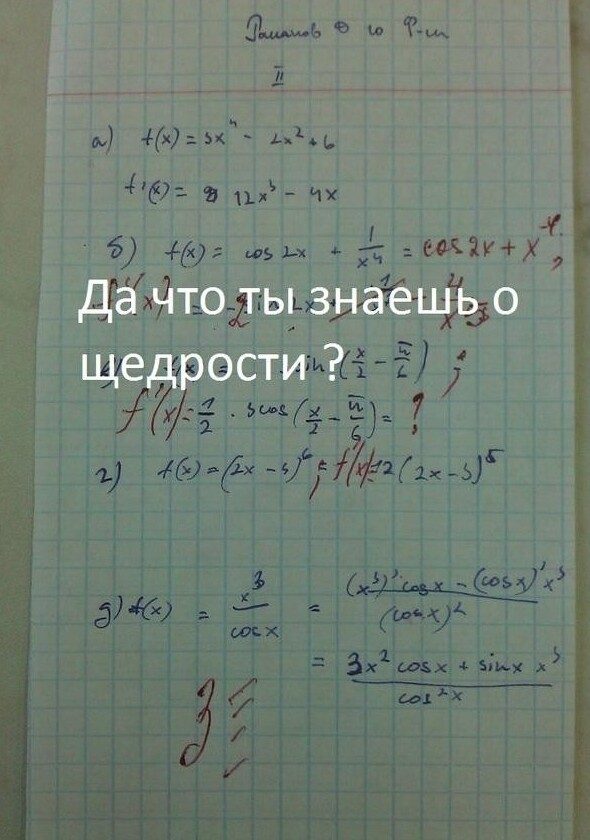 Романов Ф 10 Ф-м
II
а) f(x) = 3x⁴ - 2x² + 6
f'(x) = 12x³ - 4x
б) f(x) = cos 2x + 1/x⁴ = cos 2x + x⁻⁴;
Да что ты знаешь о
щедрости ?
sin(x/2 - π/6);
f'(x) = 1/2 · 3cos(x/2 - π/6) = !
г) f(x) = (2x - 3)⁶; f'(x) = 12(2x - 3)⁵
д) f(x) = x³/cosx = ((x³)' cosx - (cosx)' x³)/(cosx)²
= (3x² cosx + sinx x³)/cos²x
3